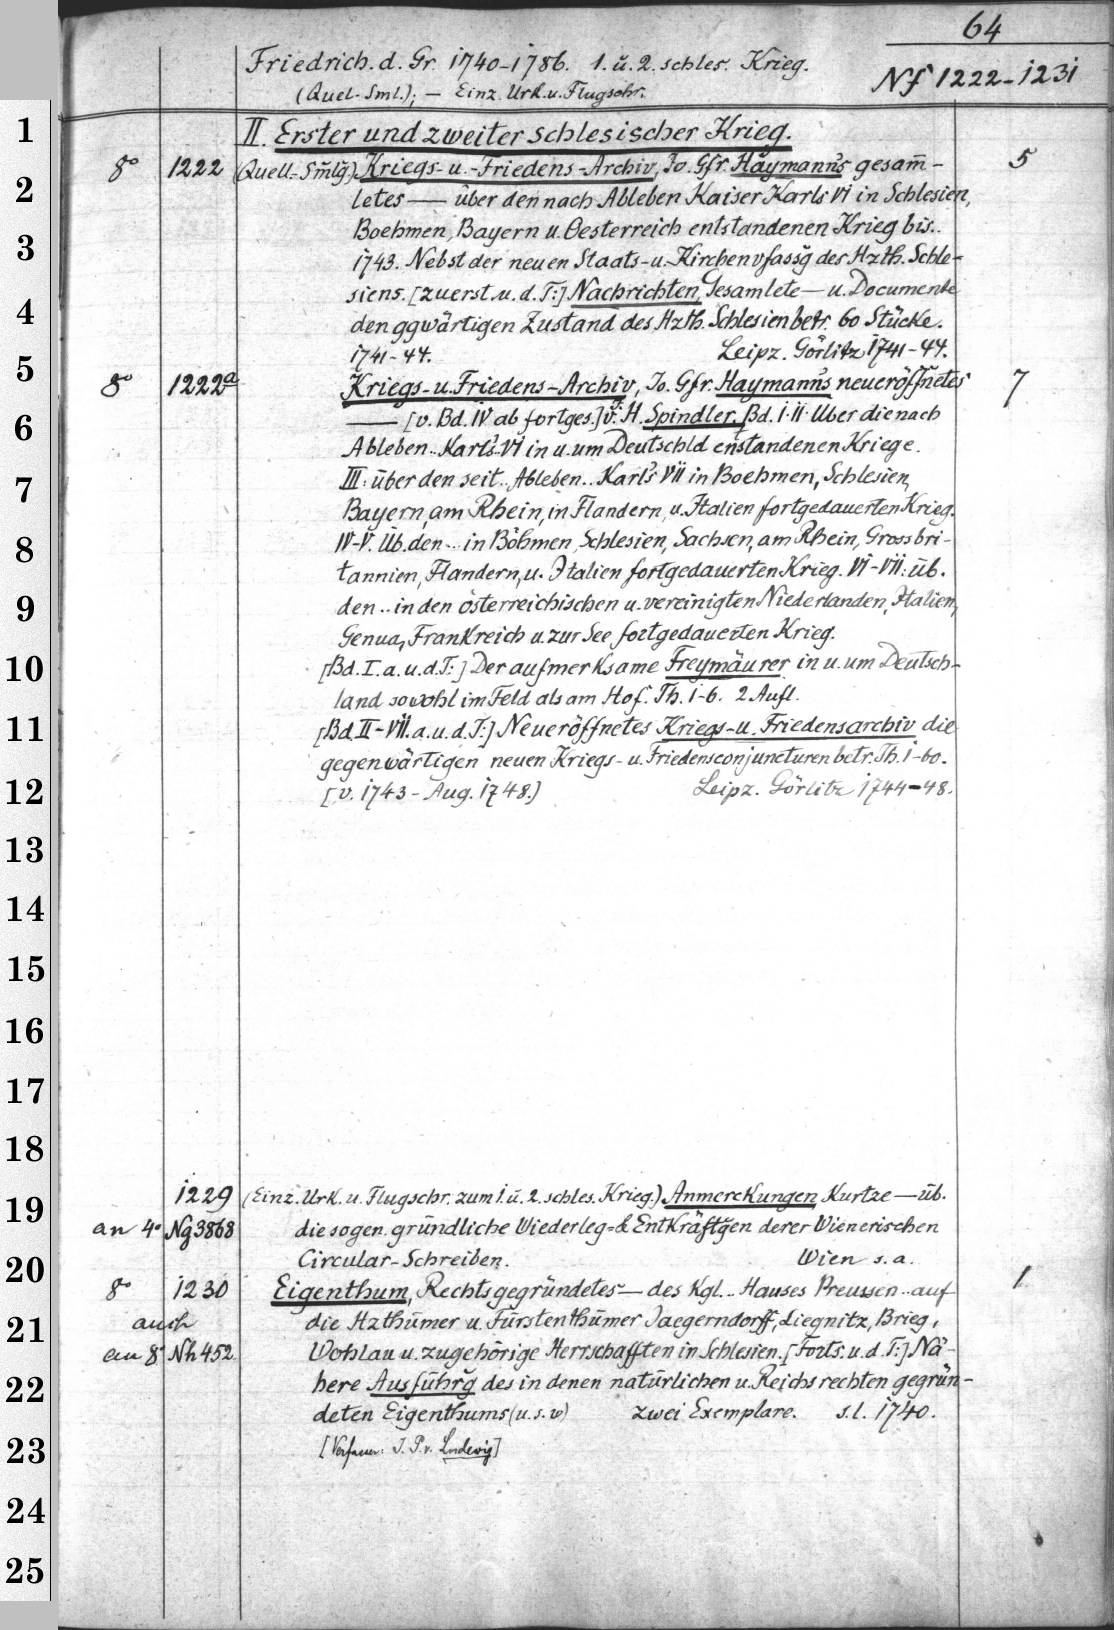 64
Friedrich. d. Gr. 1740-1786. 1. u. 2. schles. Krieg.
Nf 1222-1231
(Quel- Sml.); — Einz. Urk. u. Flugschr.
1
II. Erster und zweiter schlesischer Krieg.
8° 1222 (Quell-Sm̅lg̅) Kriegs- u.-Friedens-Archiv, Jo. Gfr. Haymann's gesam̅- 5
2
letes — über den nach Ableben Kaiser Karls VI in Schlesien,
Boehmen, Bayern u. Oesterreich entstandenen Krieg bis..
3
1743. Nebst der neuen Staats-u.-Kirchenvfassg̅ des Hzth. Schle-
siens. [zuerst. u. d. T:] Nachrichten, Gesamlete — u. Documente
4
den ggwärtigen Zustand des Hzth. Schlesien betr. 60 Stücke.
1741-44. Leipz. Görlitz 1741-44.
5
8° 1222a Kriegs-u. Friedens-Archiv, Jo. Gfr. Haymann's neueröffnetes 7
6
— [v. Bd. IV ab fortges.] v. H. Spindler. Bd. I. II. Über die nach
Ableben.. Karl's VI in u. um Deutschld enstandenen Kriege.
7
III: über den seit.. Ableben.. Karl's VII in Boehmen, Schlesien,
Bayern, am Rhein, in Flandern, u. Italien fortgedauerten Krieg.
8
IV-V. Üb. den.. in Böhmen, Schlesien, Sachsen, am Rhein, Grossbri-
tannien, Flandern, u. Italien fortgedauerten Krieg. VI-VII: üb.
9
den.. in den österreichischen u. vereinigten Niederlanden, Italien,
Genua, Frankreich u. zur See fortgedauerten Krieg.
10
[Bd. I. a. u. d. T:] Der aufmerksame Freymäurer in u. um Deutsch-
land sowohl im Feld als am Hof. Th. 1-6. 2 Aufl.
11
[Bd. II-VII. a. u. d. T:] Neueröffnetes Kriegs-u. Friedensarchiv die
gegenwärtigen neuen Kriegs- u. Friedensconjuncturen betr. Th. 1-60.
12
[v. 1743 - Aug. 1748.] Leipz. Görlitz 1744-48.
13
14
15
16
17
18
1229 (Einz. Urk. u. Flugschr. zum 1. u. 2. schles. Krieg.) Anmerckungen, Kurtze — üb.
19
an 4° Ng3868 die sogen. gründliche Wiederleg=& Entkräftg̅en derer Wienerischen
Circular-Schreiben. Wien s. a.
20
8° 1230 Eigenthum, Rechtsgegründetes — des Kgl.. Hauses Preussen.. auf 1
auch die Hzthümer u. Fürstenthümer Jaegerndorff, Liegnitz, Brieg,
21
an 8° Nh452 Wohlau u. zugehörige Herrschafften in Schlesien. [Forts: u. d. T:] Nä-
22
here Ausführg̅ des in denen natürlichen u. Reichsrechten gegrün-
deten Eigenthums (u. s. w) zwei Exemplare. s. l. 1740.
23
[Verfasser: J. P. v. Ludewig]
24
25